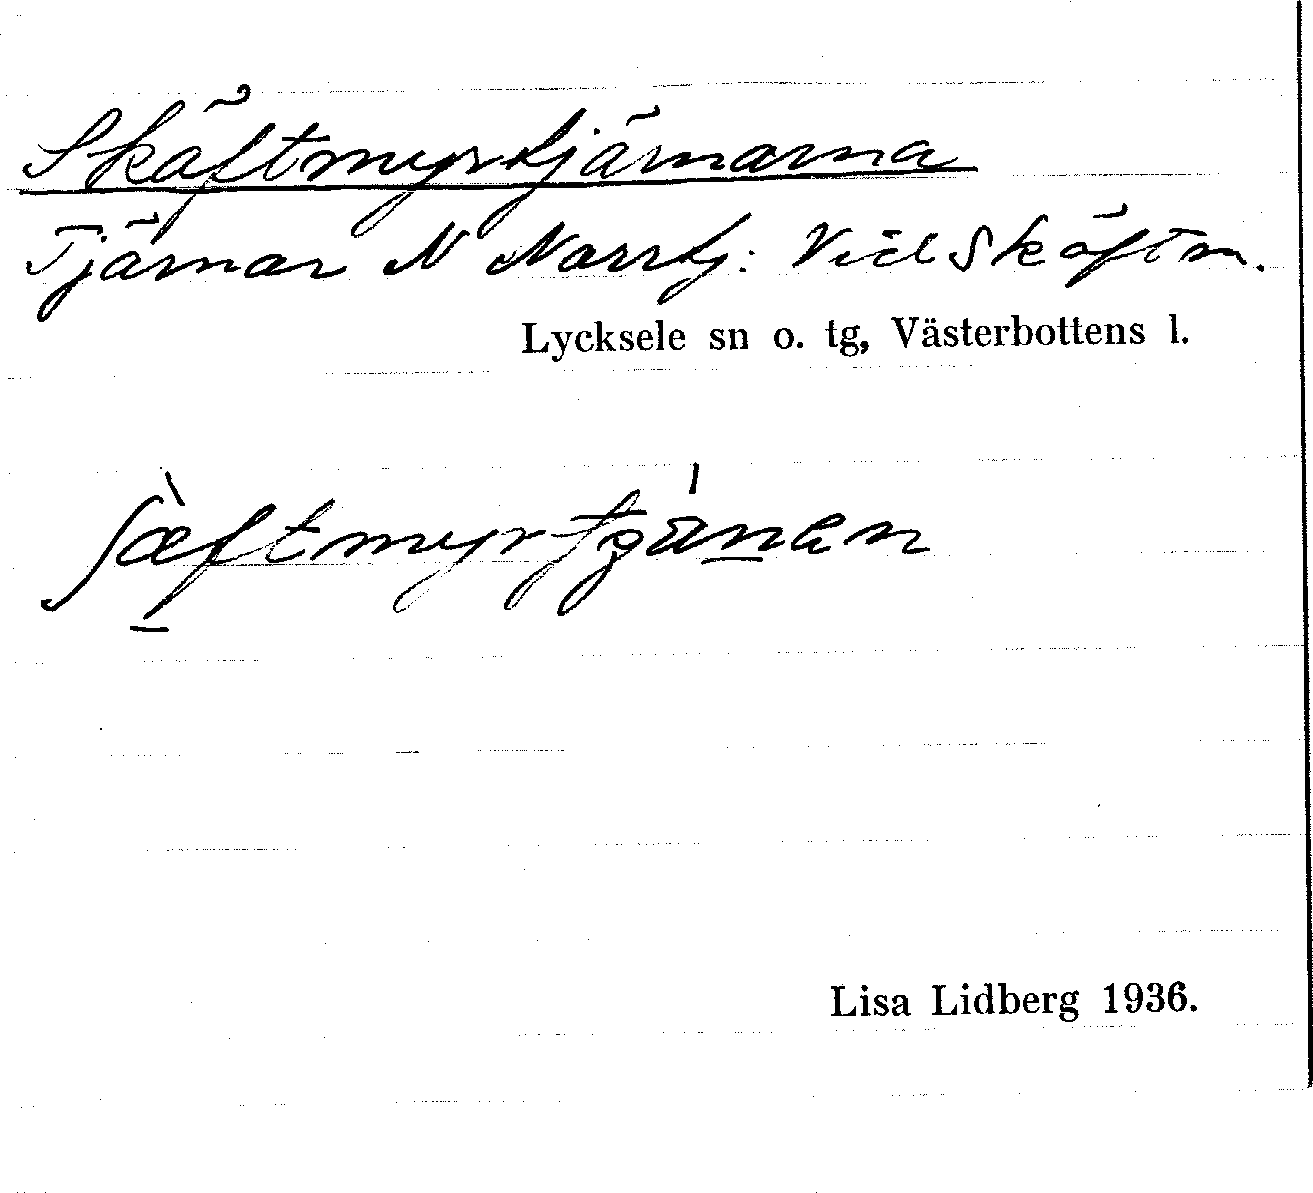 Skäftmyrtjärnarna
Tjärnar N Norrtj: Vid Skäftm.
Lycksele sn o. tg, Västerbottens l.
Lisa Lidberg 1936.